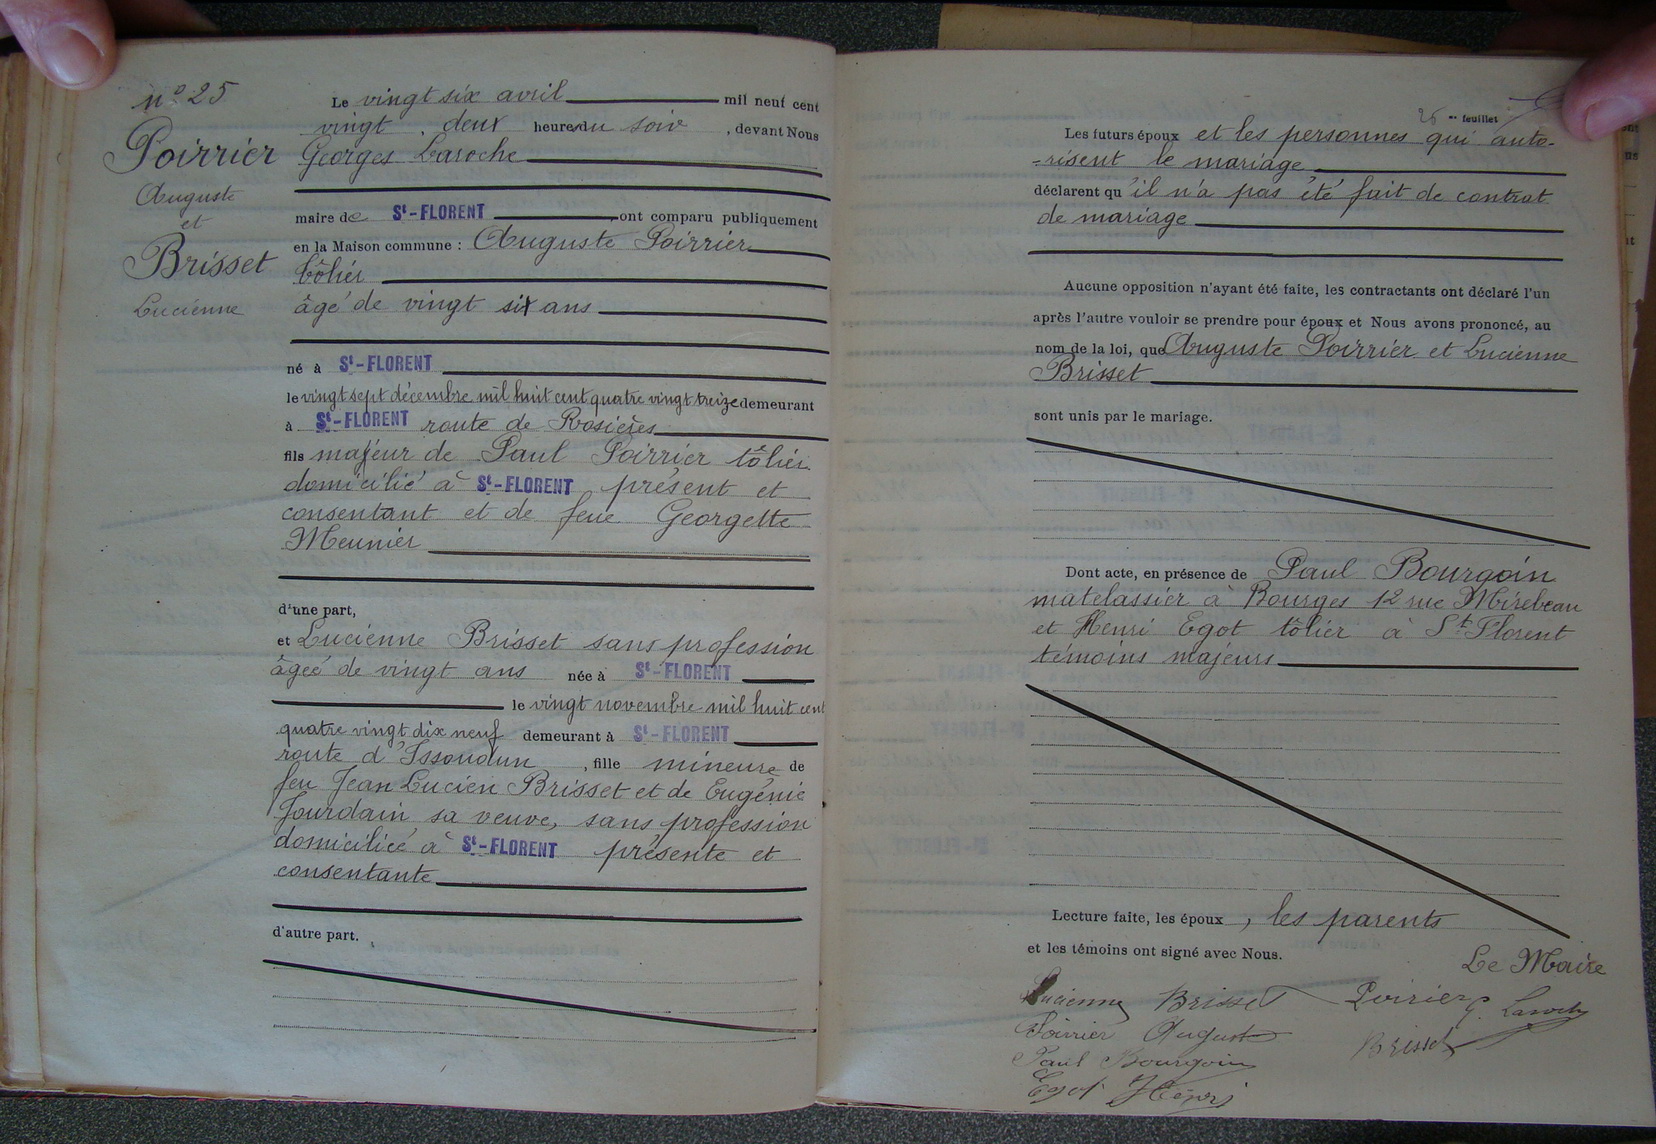 N° 25
Poirrier
Auguste
et
Brisset
Lucienne
Le vingt six avril mil neuf cent
vingt, deux heures du soir, devant Nous
Georges Laroche
maire de St-FLORENT ont comparu publiquement
en la Maison commune : Auguste Poirrier
tôlier
âgé de vingt six ans
né à St-FLORENT
le vingt sept décembre mil huit cent quatre vingt treize demeurant
à St-FLORENT route de Rosières
fils majeur de Paul Poirrier tôlier
domicilié à St-FLORENT présent et
consentant et de feue Georgette
Meunier
d'une part,
et Lucienne Brisset sans profession
âgée de vingt ans née à St-FLORENT
le vingt novembre mil huit cent
quatre vingt dix neuf demeurant à St-FLORENT
route d'Issoudun, fille mineure de
feu Jean Lucien Brisset et de Eugénie
Jourdain sa veuve, sans profession
domiciliée à St-FLORENT présente et
consentante
d'autre part.
25 me feuillet
Les futurs époux et les personnes qui auto-
-risent le mariage
déclarent qu'il n'a pas été fait de contrat
de mariage
Aucune opposition n'ayant été faite, les contractants ont déclaré l'un
après l'autre vouloir se prendre pour époux et Nous avons prononcé, au
nom de la loi, que Auguste Poirrier et Lucienne
Brisset
sont unis par le mariage.
Dont acte, en présence de Paul Bourgoin
matelassier à Bourges 12 rue Mirebeau
et Henri Egot tôlier à St Florent
témoins majeurs
Lecture faite, les époux, les parents
et les témoins ont signé avec Nous.
Le Maire
Lucienne Brisset Poirier G. Laroche
Poirrier August
Brisset
Paul Bourgoin
Egot Henri